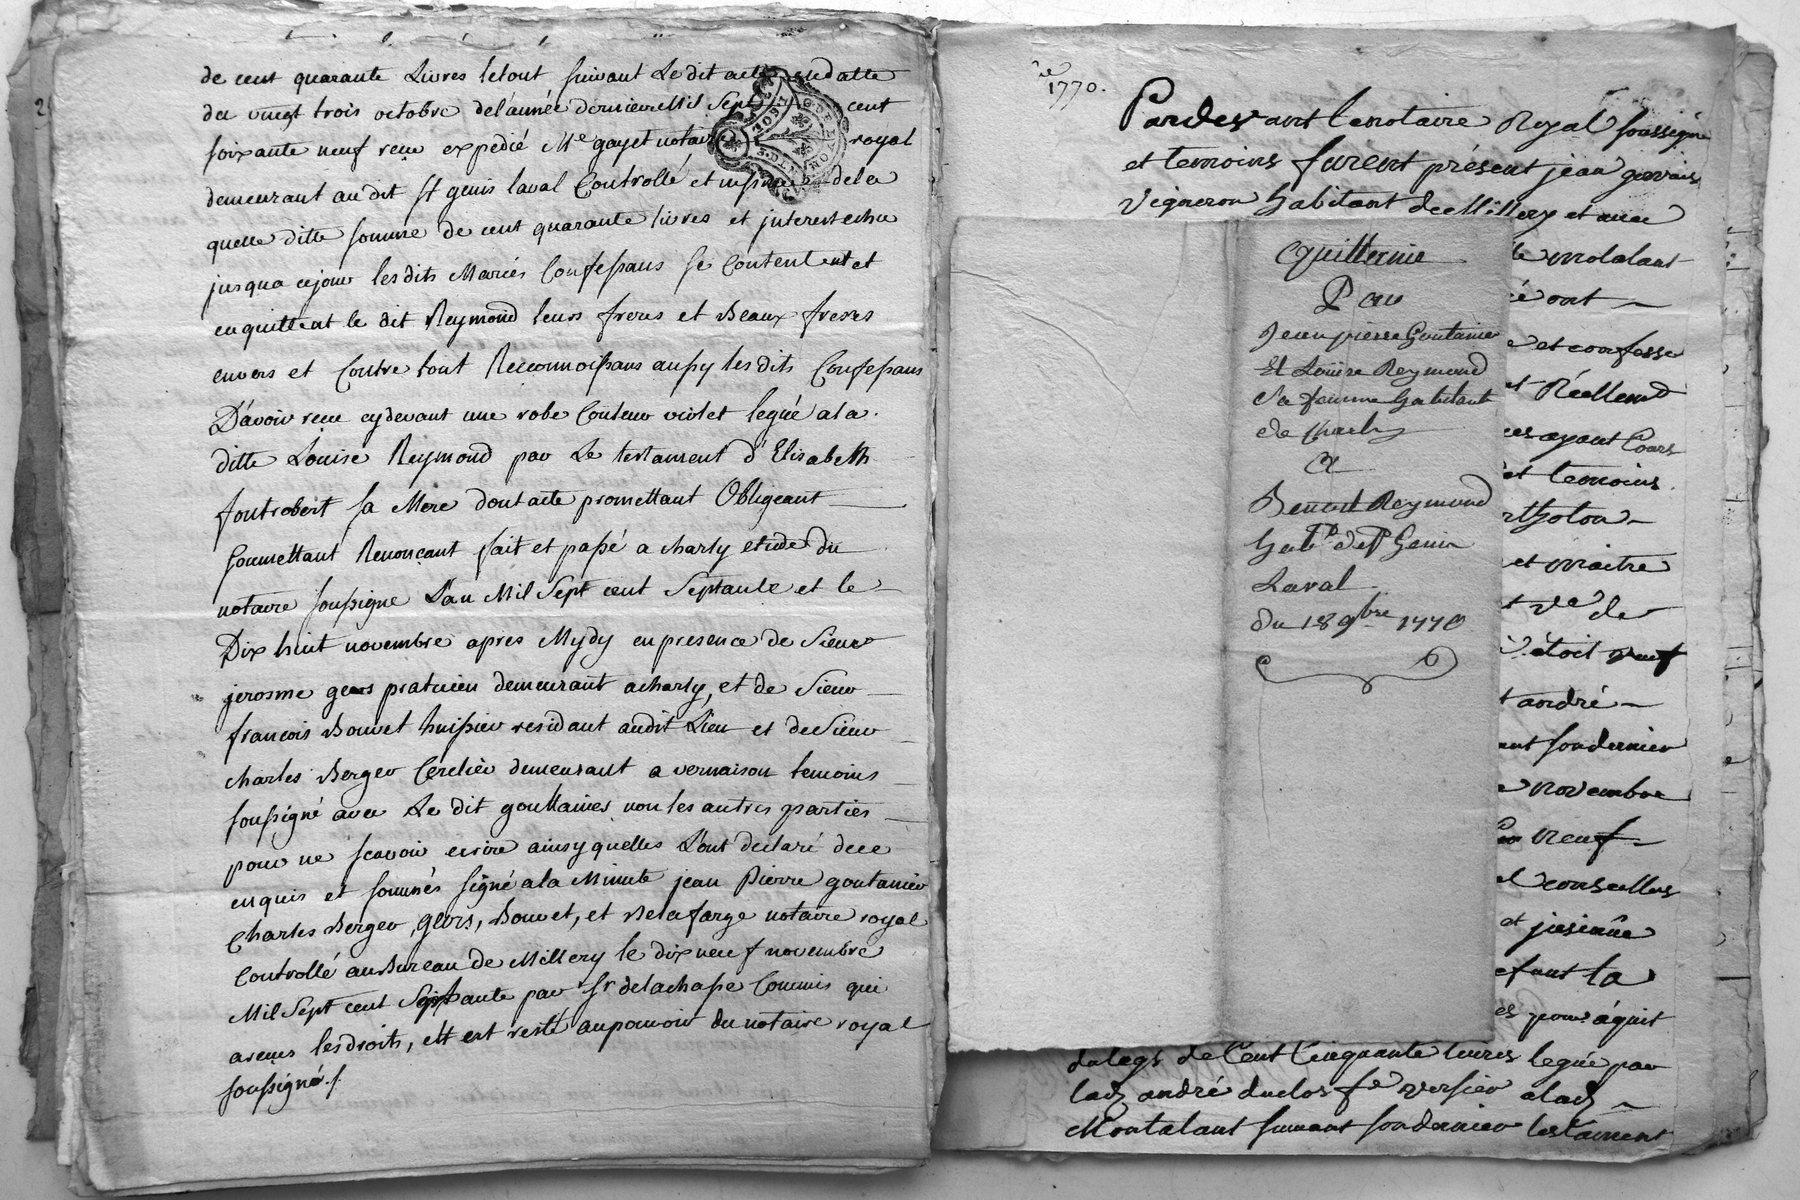 de cent quarante Livres letout suivant Le dit acte endatte
du vingt trois octobre del'année derniere Mil Sept cent
soixante neuf reçu expedié Me gayet notaire royal
demeurant au dit St genis laval Controllé et insinué dela
quelle ditte somme de cent quarante livres et jnterest echu
jusqua cejour lesdits Mariés Confessans se Contentent et
enquittent le dit Reymond leurs freres et Beaux freres
envers et Contre tout Reconnoissans aussy lesdits Confessans
D'avoir reçu cydevant une robe Couleur violet leguée a la
ditte Louise Reymond par Le testament d'Elisabeth
fontrobert sa Mere dont acte promettant Obligeant
Soumettant Renonçant fait et passé a charly etude du
notaire soussigné L'an Mil Sept cent Septante et le
Dix huit novembre apres Mydy en presence de Sieur
jerosme geors praticien demeurant acharly, et de Sieur
francois Bouvet huissier residant audit Lieu et de Sieur
charles Berger Cerclier demeurant a vernaison temoins
soussigné avec Le dit gouttanier non les autres parties
pour ne scavoir ecrire ainsy quelles L'ont declaré de ce
enquis et sommés signé a la Minute jean Pierre goutanier
Charles Berger, geors, Bouvet, et Delafarge notaire royal
Controllé au Bureau de Millery le dix neuf novembre
Mil Sept cent Septante par Sr delachasse Commis qui
a reçus les droits, et est resté aupouvoir du notaire royal
soussigné ./.
1770.
Pardevant le notaire Royal soussigné
et temoins furent présent jean gervais
vigneron habitant de Millery et
molalant
ont
et confesse
Réellem
ayant Cours
et temoins
et maitre
de
étoit veuf
andré
son dernier
novembre
neuf
et conseillers
et
la
pour áquit
du legs de Cent Cinquante livres legué par
lad. andré duclos fe versier a lad.
Montalant suivant son dernier testament
Quittance
Par
Jean pierre Goutanier
Et Louise Reymond
Sa femme habitants
de Charly
A
Benoit Reymond
habt. de St Genis
Laval
du 18 9bre 1770